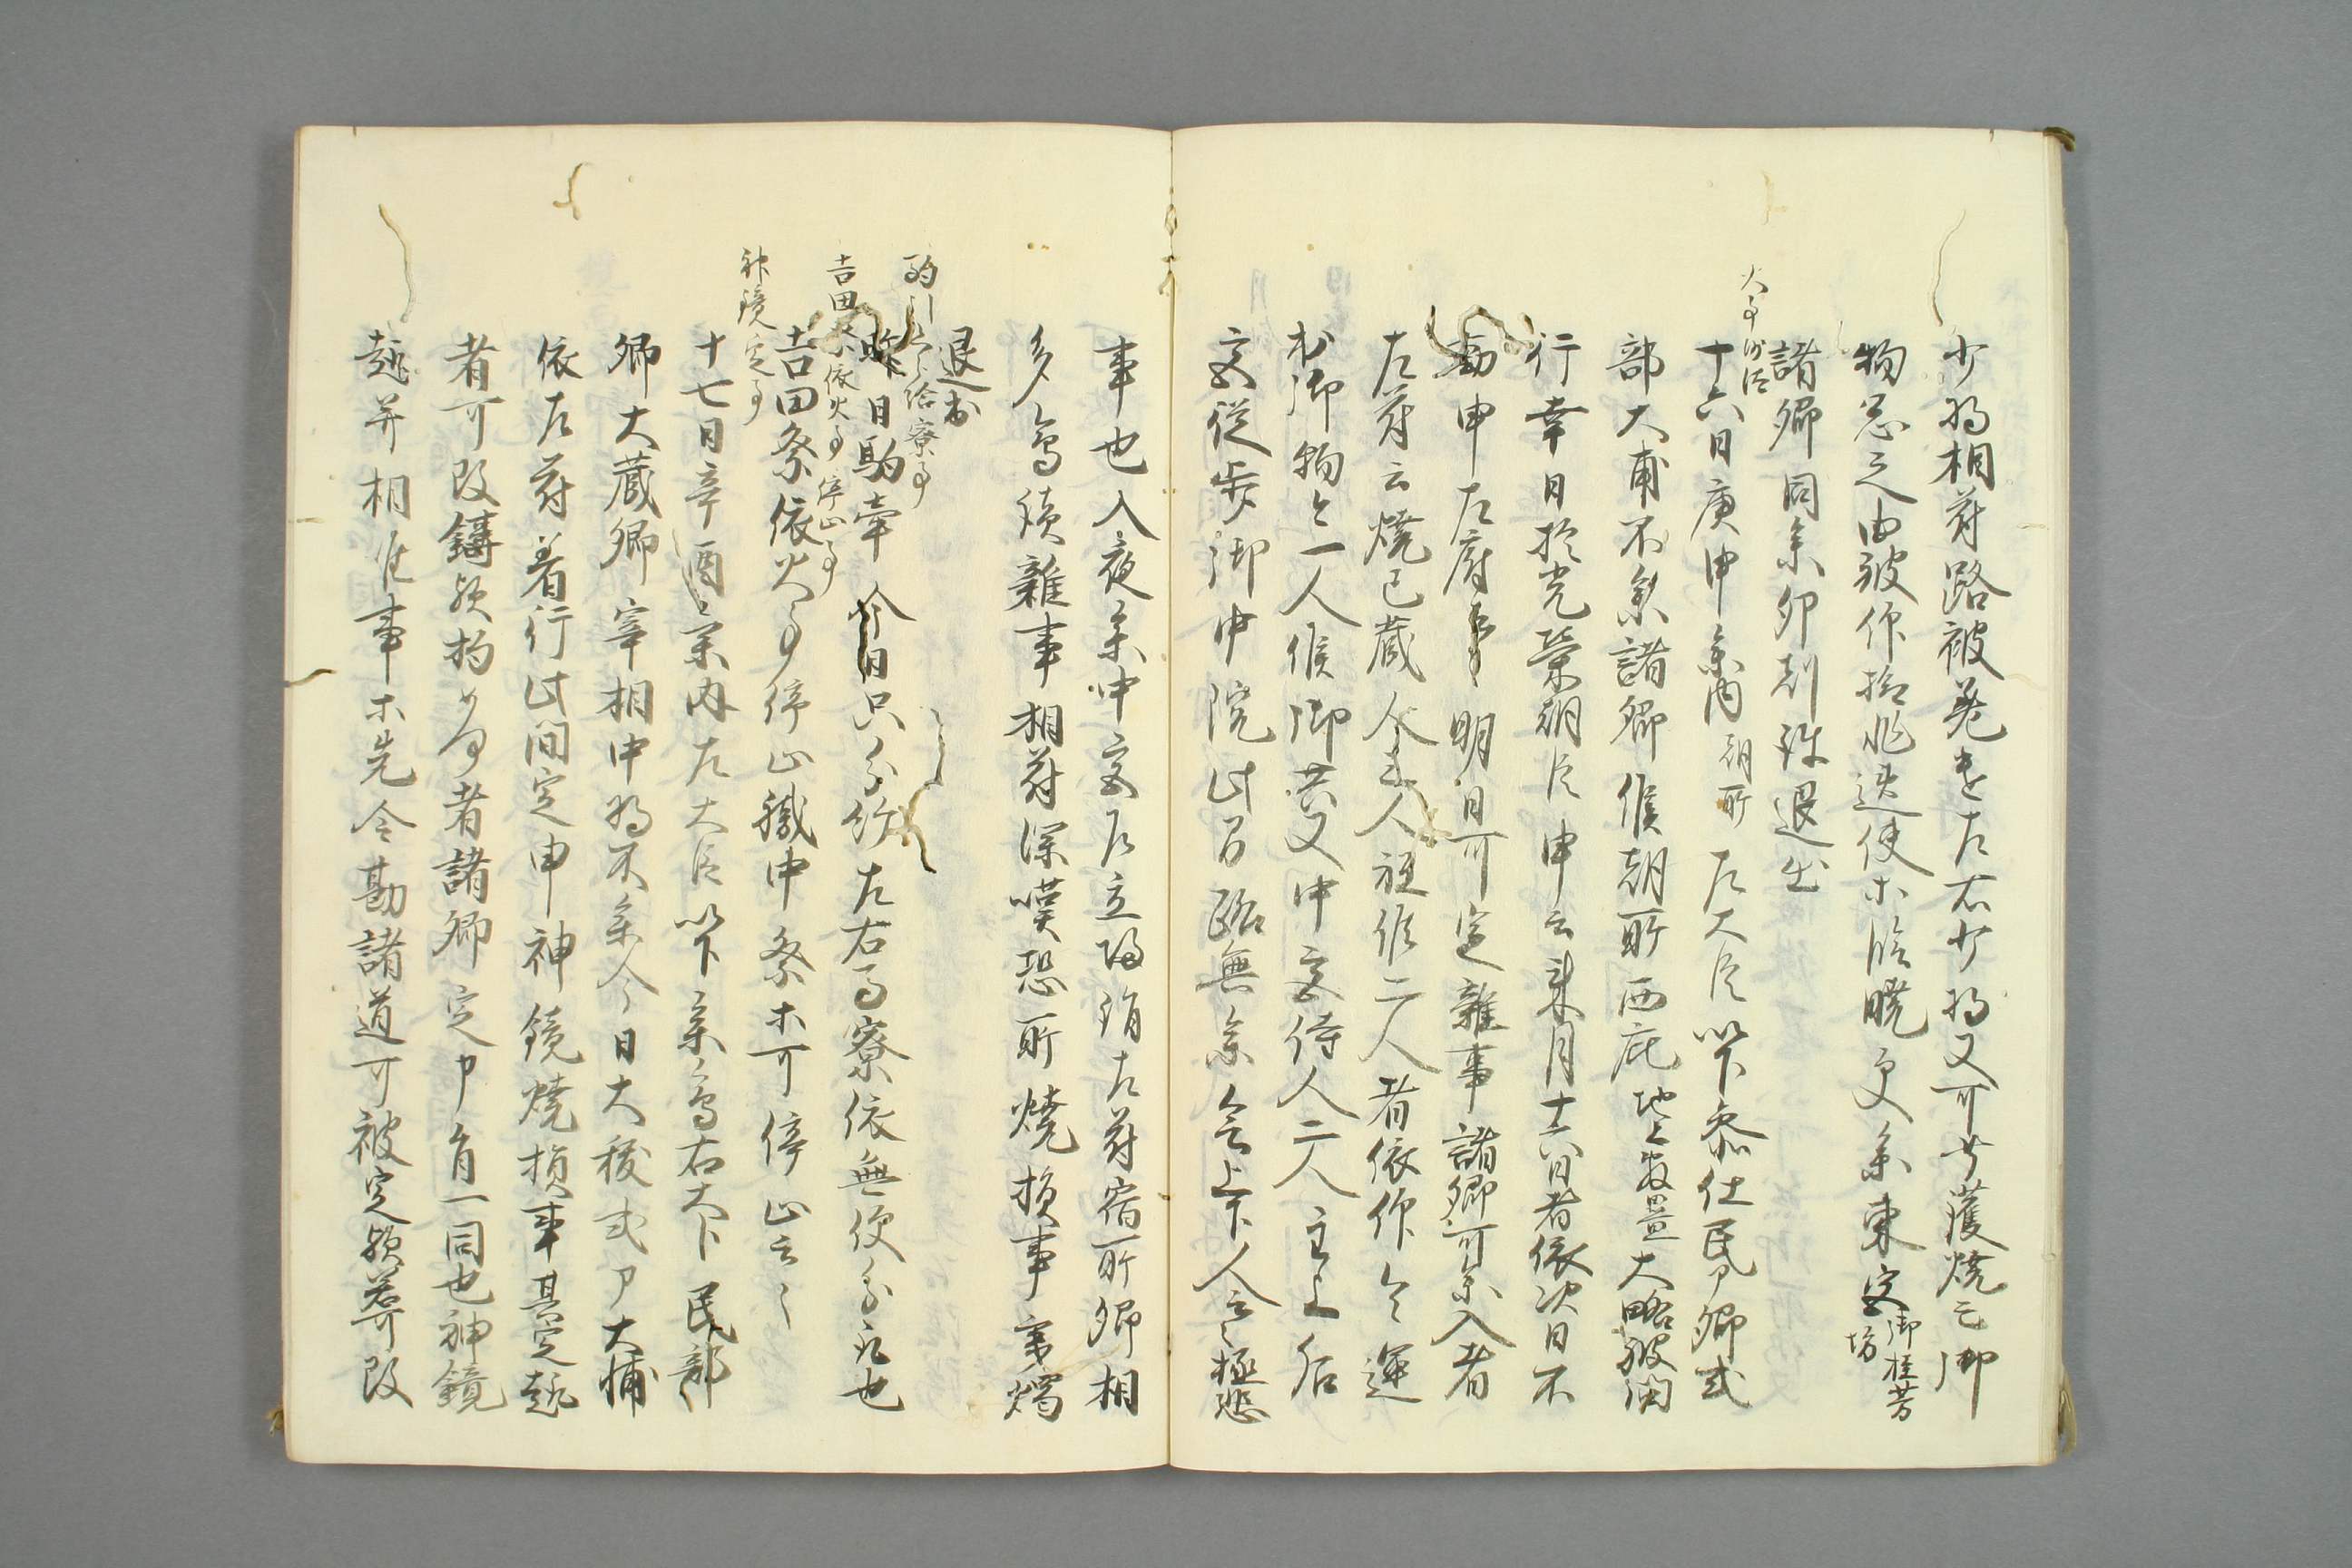 少将相府路被差遣左右少将又可守護焼亡御
物忌之由被仰検非違使等臨暁更参東宮御桂芳
坊
諸卿同参卯剋許退出
火事御占
十六日庚申参内朝所左大臣以下参仕民部卿式
部大甫不参諸卿候朝所西庇地上敷畳大略被問
行幸日於光栄朝臣申云来月十六日者依次日不
勘申左府命明日可定雑事諸卿可参入者
左府云焼已蔵人所人被候二人者依仰令運
出御物之一人候御共又中宮侍人二人主上后
宮従歩御中院此間路無参会上下人云々極悲
事也入夜参中宮即立帰詣左府宿所卿相
多為陪雑事相府深嘆恐所焼損事秉燭
退出
駒引分給寮事
昨日駒牽今日只分給左右馬寮依無便分取也
吉田祭依火事停止事
吉田祭依火事停止職中祭等可停止云々
神鏡定事
十七日辛酉参内左大臣以下参為右大卜民部
卿大蔵卿宰相中将不参今日大秡式部大輔
依左府着行此間定申神鏡焼損事其定趣
者可改鋳歟拘如何者諸卿定申旨一同也神鏡
趣并相准事等先令勘諸道可被定歟若可改